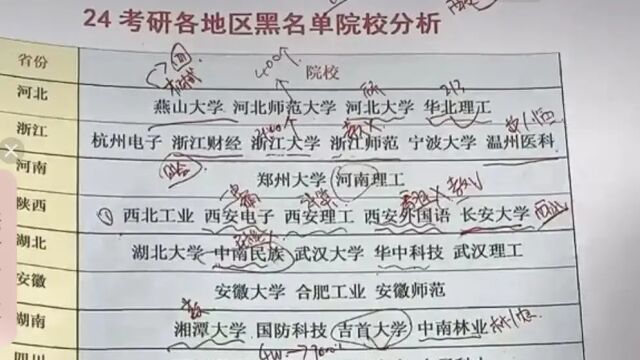 24考研各地区黑名单院校分析
省份 院校
河北 燕山大学 河北师范大学 河北大学 华北理工
浙江 杭州电子 浙江财经 浙江大学 浙江师范 宁波大学 温州医科
河南 郑州大学 河南理工
陕西 ① 西北工业 西安电子 西安理工 西安外国语 长安大学
湖北 湖北大学 中南民族 武汉大学 华中科技 武汉理工
安徽 安徽大学 合肥工业 安徽师范
湖南 湘潭大学 国防科技 吉首大学 中南林业